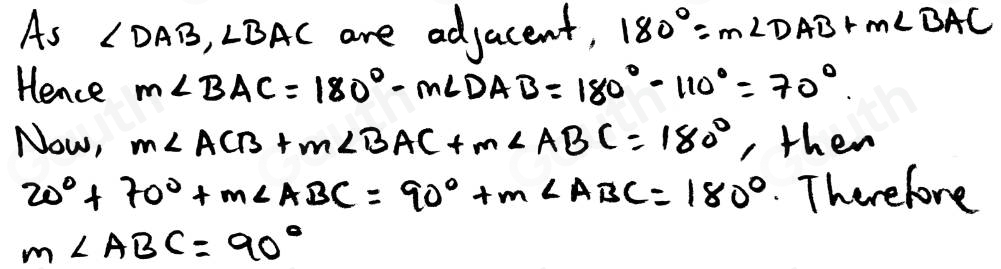 As ∠DAB, ∠BAC are adjacent, 180° = m∠DAB + m∠BAC
Hence m∠BAC = 180° - m∠DAB = 180° - 110° = 70°.
Now, m∠ACB + m∠BAC + m∠ABC = 180°, then
20° + 70° + m∠ABC = 90° + m∠ABC = 180°. Therefore
m∠ABC = 90°